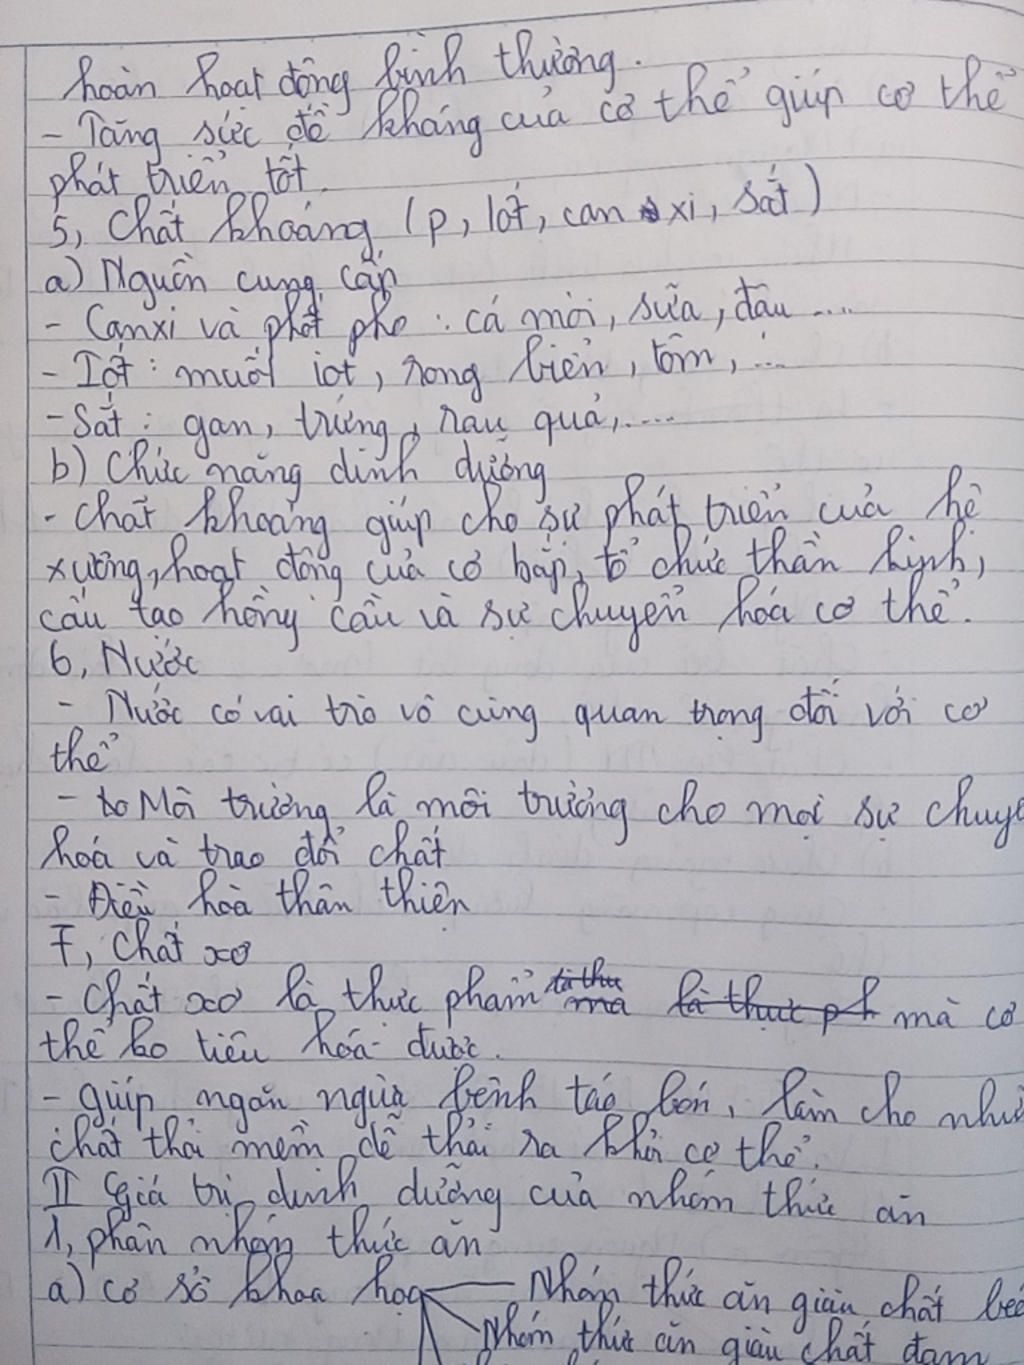 hoàn hoạt động bình thường.
- Tăng sức đề kháng của cơ thể giúp cơ thể
phát triển tốt.
5, Chất khoáng (p, lốt, can xi, sắt)
a) Nguồn cung cấp
- Canxi và phốt pho : cá mòi, sữa, đậu ....
- Iốt : muối iot, rong biển, tôm, ...
- Sắt : gan, trứng, rau quả,.....
b) Chức năng dinh dưỡng
- Chất khoáng giúp cho sự phát triển của hệ
xương, hoạt động của cơ bắp, tổ chức thần kinh,
cấu tạo hồng cầu và sự chuyển hóa cơ thể.
6, Nước
- Nước có vai trò vô cùng quan trọng đối với cơ
thể
- Môi trường là môi trường cho mọi sự chuyể
hoá và trao đổi chất
- Điều hoà thân thiện
7, Chất xơ
- Chất xơ là thực phẩm là thu ma là thực ph mà cơ
thể ko tiêu hoá được.
- giúp ngăn ngừa bệnh táo bón, làm cho nhữ
chất thải mềm dễ thải ra khỏi cơ thể.
II Giá trị dinh dưỡng của nhóm thức ăn
1, phân nhóm thức ăn
a) cơ sở khoa học Nhóm thức ăn giàu chất béo
Nhóm thức ăn giàu chất đạm